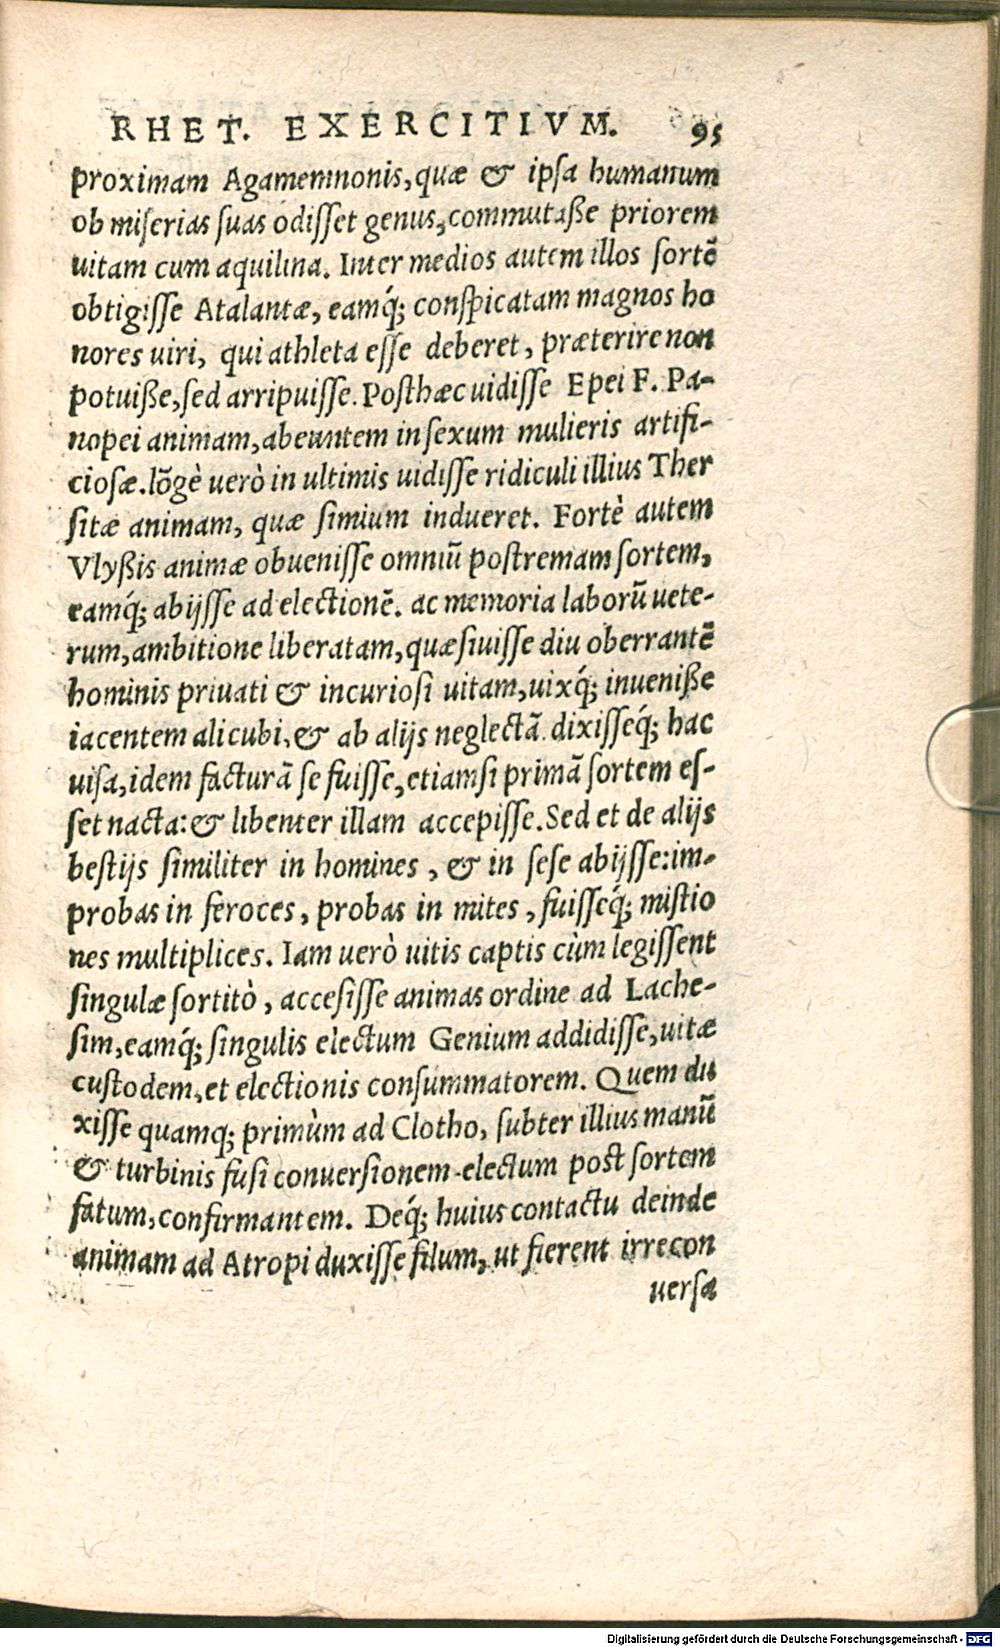 RHET. EXERCITIVM. 95
proximam Agamemnonis, quæ & ipsa humanum
ob miserias suas odisset genus, commutaße priorem
uitam cum aquilina. Inter medios autem illos sortē
obtigisse Atalantæ, eamq́; conspicatam magnos ho
nores uiri, qui athleta esse deberet, præterire non
potuiße, sed arripuisse. Post hæc uidisse Epei F. Pa-
nopei animam, abeuntem in sexum mulieris artifi-
ciosæ. lõgè uerò in ultimis uidisse ridiculi illius Ther
sitæ animam, quæ simium indueret. Fortè autem
Vlyßis animæ obuenisse omniũ postremam sortem,
eamq́; abijsse ad electionē. ac memoria laborũ uete-
rum, ambitione liberatam, quæsiuisse diu oberrantē
hominis priuati & incuriosi uitam, uixq́; inueniße
iacentem alicubi, & ab alijs neglectã. dixisseq́; hac
uisa, idem facturã se fuisse, etiamsi primã sortem es-
set nacta: & libenter illam accepisse. Sed et de alijs
bestijs similiter in homines, & in sese abijsse: im-
probas in feroces, probas in mites, fuisseq́; mistio
nes multiplices. Iam uerò uitis captis cùm legissent
singulæ sortitò, accesisse animas ordine ad Lache-
sim, eamq́; singulis electum Genium addidisse, uitæ
custodem, et electionis consummatorem. Quem du
xisse quamq; primùm ad Clotho, subter illius manũ
& turbinis fusi conuersionem electum post sortem
fatum, confirmantem. Deq́; huius contactu deinde
animam ad Atropi duxisse filum, ut fierent irrecon
uersa
Digitalisierung gefördert durch die Deutsche Forschungsgemeinschaft - DFG